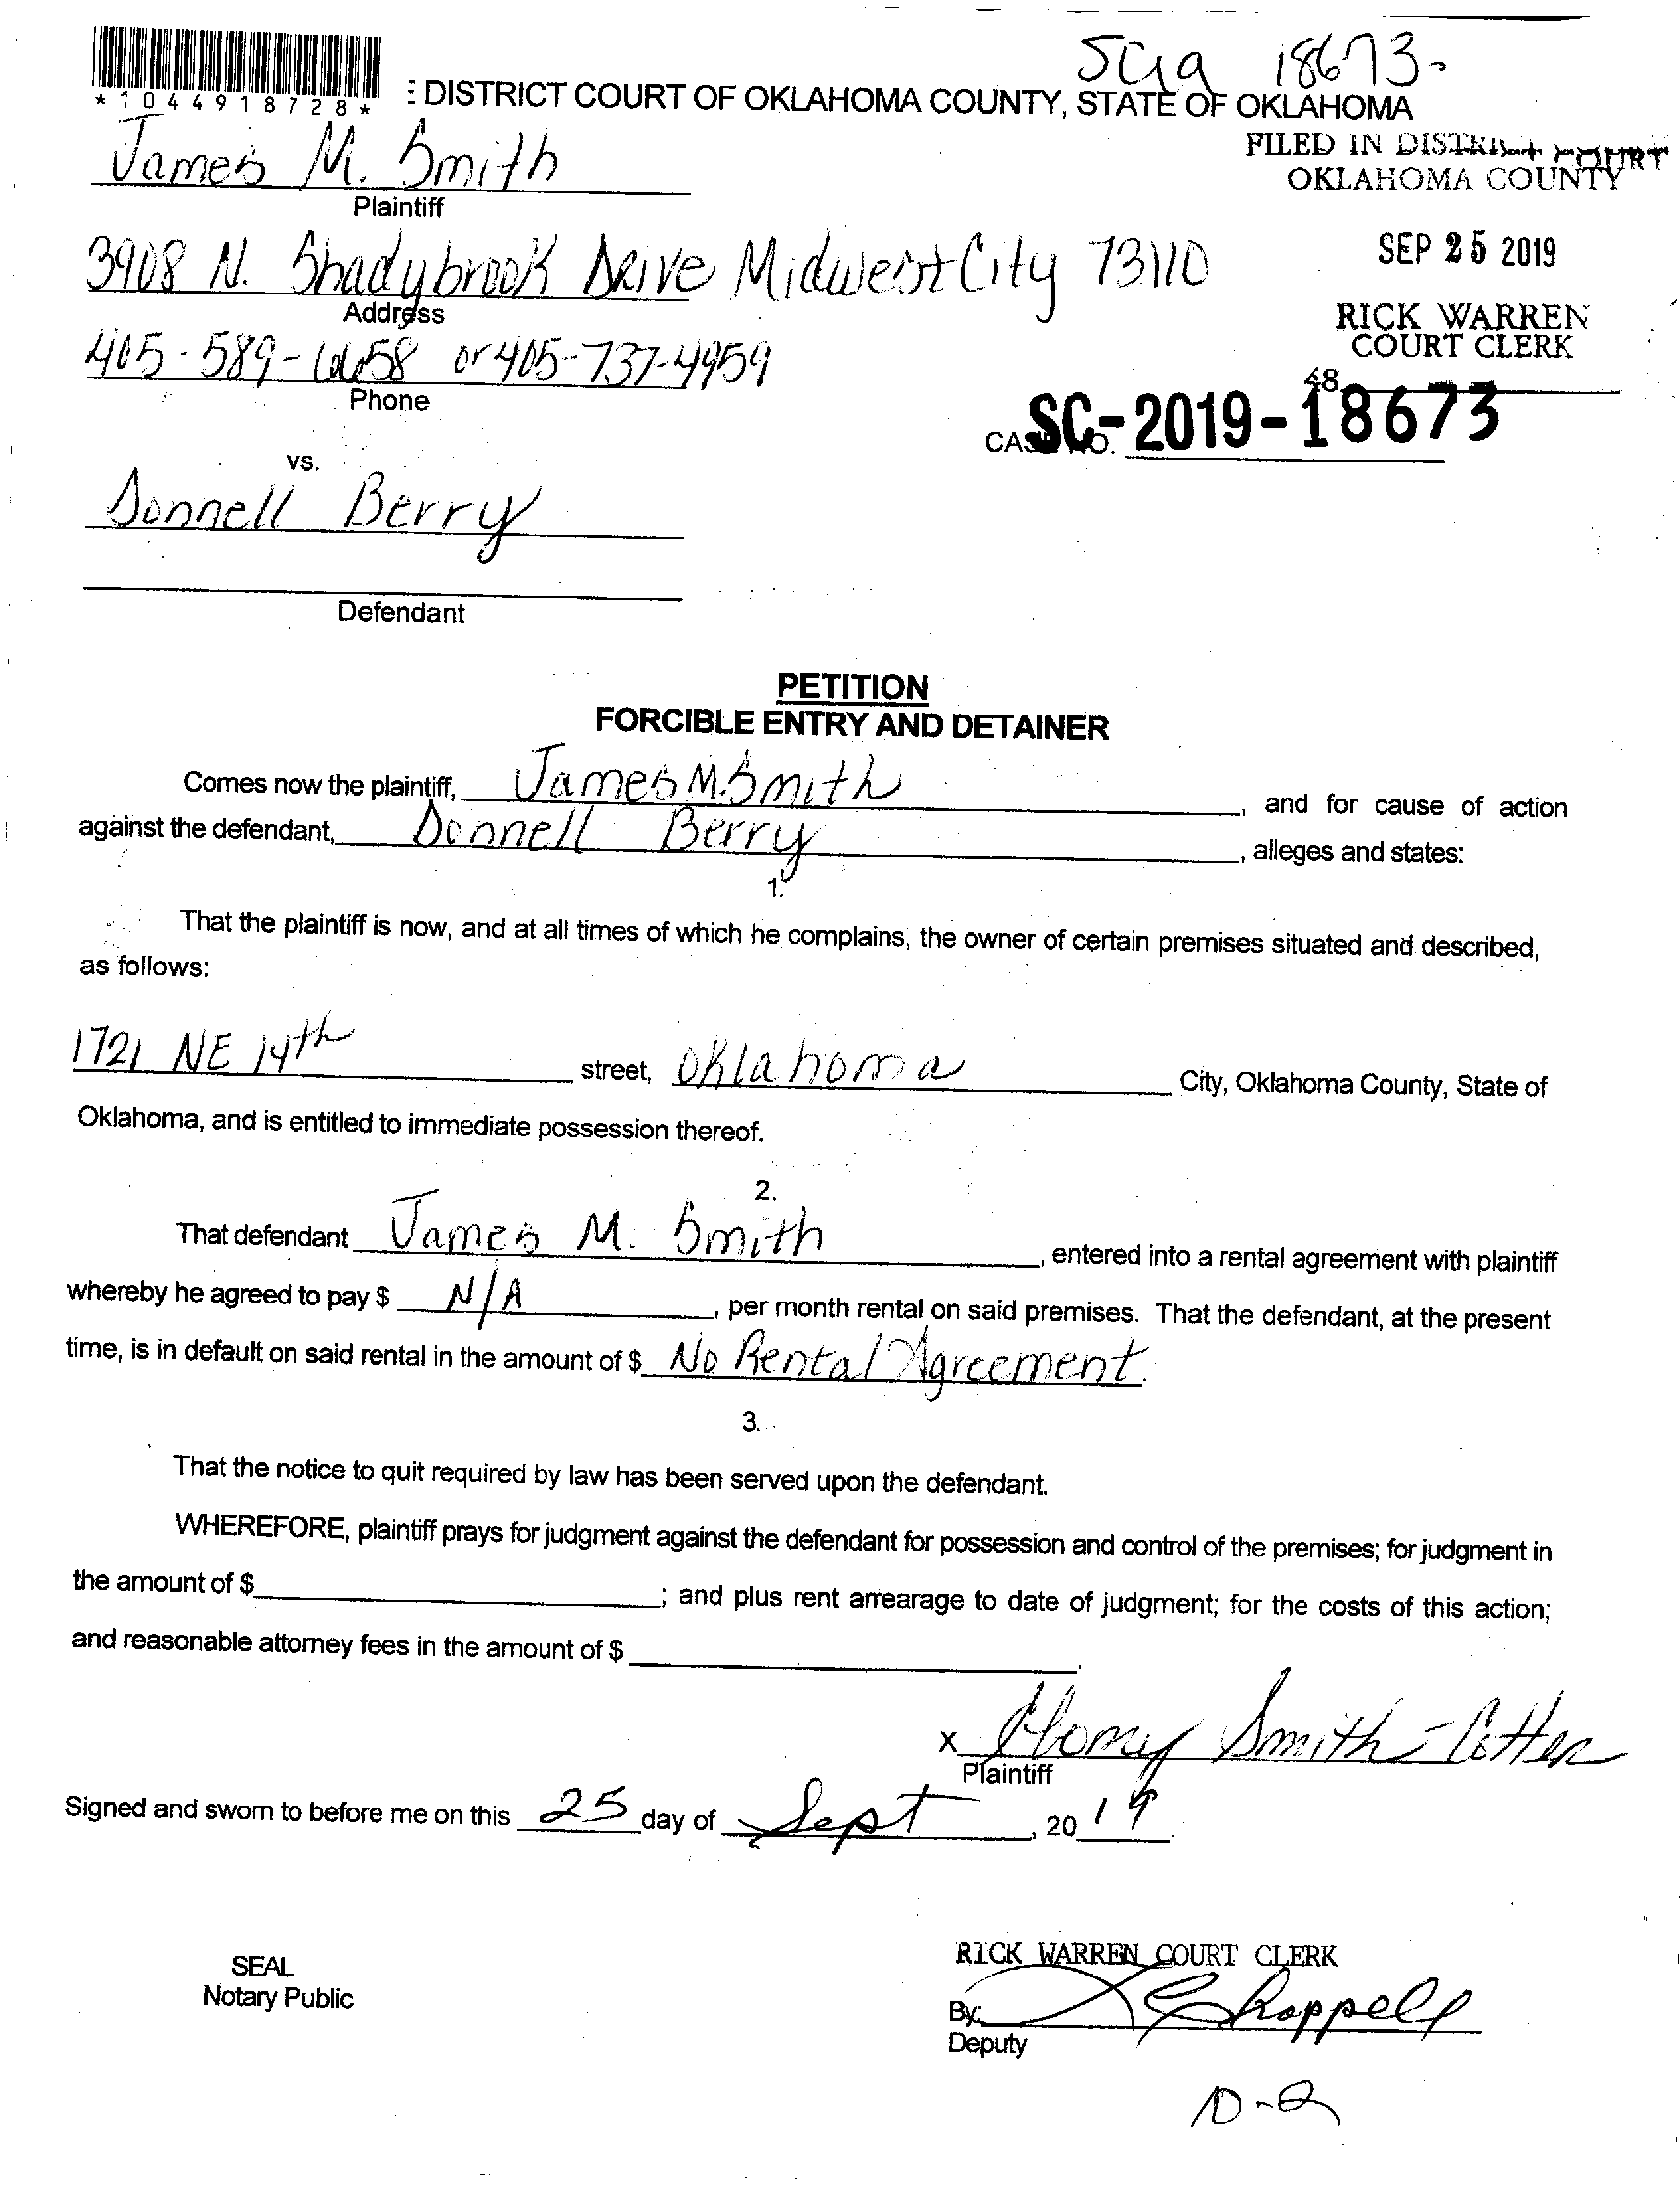 SC19 18673-
*1044918728*
E DISTRICT COURT OF OKLAHOMA COUNTY, STATE OF OKLAHOMA
FILED IN DISTRICT COURT
OKLAHOMA COUNTY
James M. Smith
Plaintiff
3908 N. Shadybrook Drive Midwest City 73110
Address
SEP 25 2019
RICK WARREN
COURT CLERK
405-589-6658 or 405-737-4959
Phone
48
CASE NO. SC-2019-18673
vs.
Donnell Berry
Defendant
PETITION
FORCIBLE ENTRY AND DETAINER
Comes now the plaintiff, James M. Smith, and for cause of action
against the defendant, Donnell Berry, alleges and states:
1.
That the plaintiff is now, and at all times of which he complains, the owner of certain premises situated and described,
as follows:
1721 NE 14th street, Oklahoma City, Oklahoma County, State of
Oklahoma, and is entitled to immediate possession thereof.
2.
That defendant James M. Smith, entered into a rental agreement with plaintiff
whereby he agreed to pay $ N/A, per month rental on said premises. That the defendant, at the present
time, is in default on said rental in the amount of $ No Rental Agreement.
3.
That the notice to quit required by law has been served upon the defendant.
WHEREFORE, plaintiff prays for judgment against the defendant for possession and control of the premises; for judgment in
the amount of $ ; and plus rent arrearage to date of judgment; for the costs of this action;
and reasonable attorney fees in the amount of $ .
x Ebony Smith-Cotten
Plaintiff
Signed and sworn to before me on this 25 day of Sept, 2019.
RICK WARREN COURT CLERK
SEAL
Notary Public
By: Chappell
Deputy